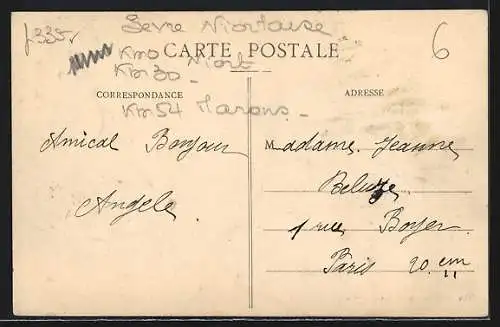 f335
Sèvre Niortaise
6
CARTE POSTALE
Km0 Niort
Km30
CORRESPONDANCE
ADRESSE
Km54 Marans
Amical Bonjour
Angèle
Madame Jeanne
Beluze
1 rue Boyer
Paris 20 em